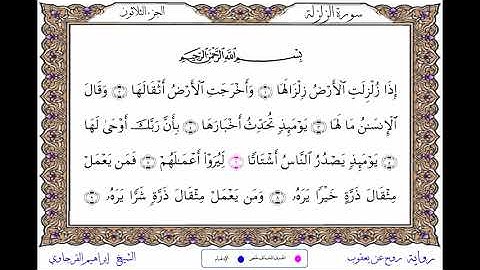 سورة الزلزلة
الجزء الثلاثون
بِسْمِ ٱللَّهِ ٱلرَّحْمَٰنِ ٱلرَّحِيمِ
إِذَا زُلْزِلَتِ ٱلْأَرْضُ زِلْزَالَهَا ۝ وَأَخْرَجَتِ ٱلْأَرْضُ أَثْقَالَهَا ۝ وَقَالَ
ٱلْإِنسَٰنُ مَا لَهَا ۝ يَوْمَئِذٍ تُحَدِّثُ أَخْبَارَهَا ۝ بِأَنَّ رَبَّكَ أَوْحَىٰ لَهَا
۝ يَوْمَئِذٍ يَصْدُرُ ٱلنَّاسُ أَشْتَاتًا ۝ لِّيُرَوْا۟ أَعْمَٰلَهُمْ ۝ فَمَن يَعْمَلْ
مِثْقَالَ ذَرَّةٍ خَيْرًا يَرَهُۥ ۝ وَمَن يَعْمَلْ مِثْقَالَ ذَرَّةٍ شَرًّا يَرَهُۥ ۝
رواية روح عن يعقوب
الشيخ إبراهيم الفرجاوي